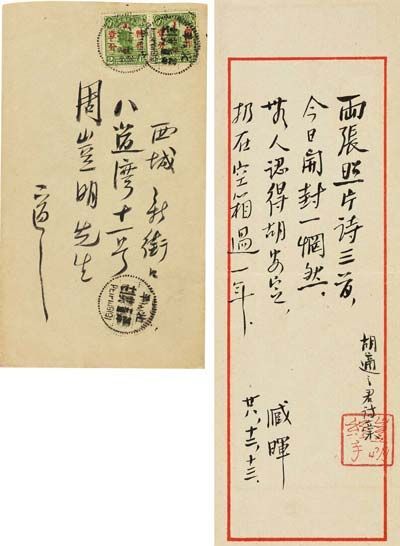 西城新街口
八道灣十一号
周豈明先生
PEIPING
兩張照片詩三首,
今日開封一惘然,
無人認得胡安定,
扔在空箱過一年.
臧暉
廿八,十二,十三.
胡適之君詩
豈明經手